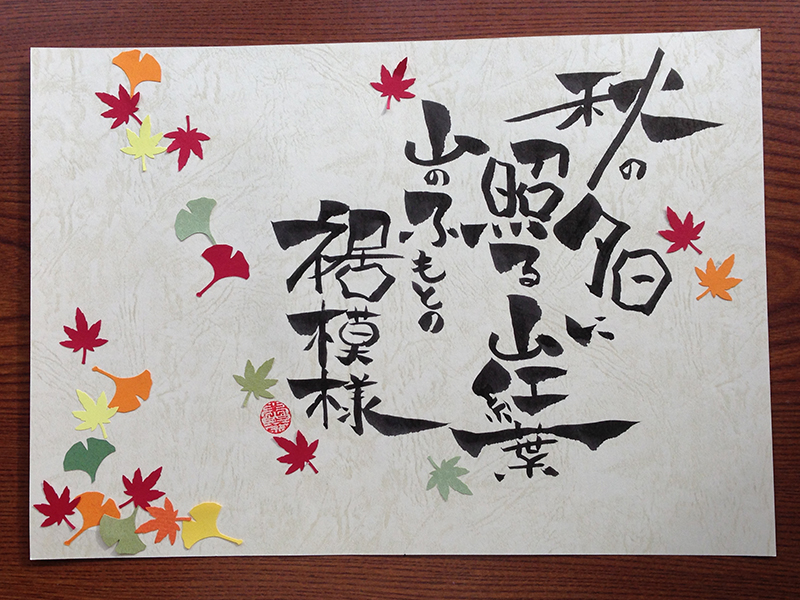 秋の夕日に
照る山紅葉
山のふもとの
裾模様